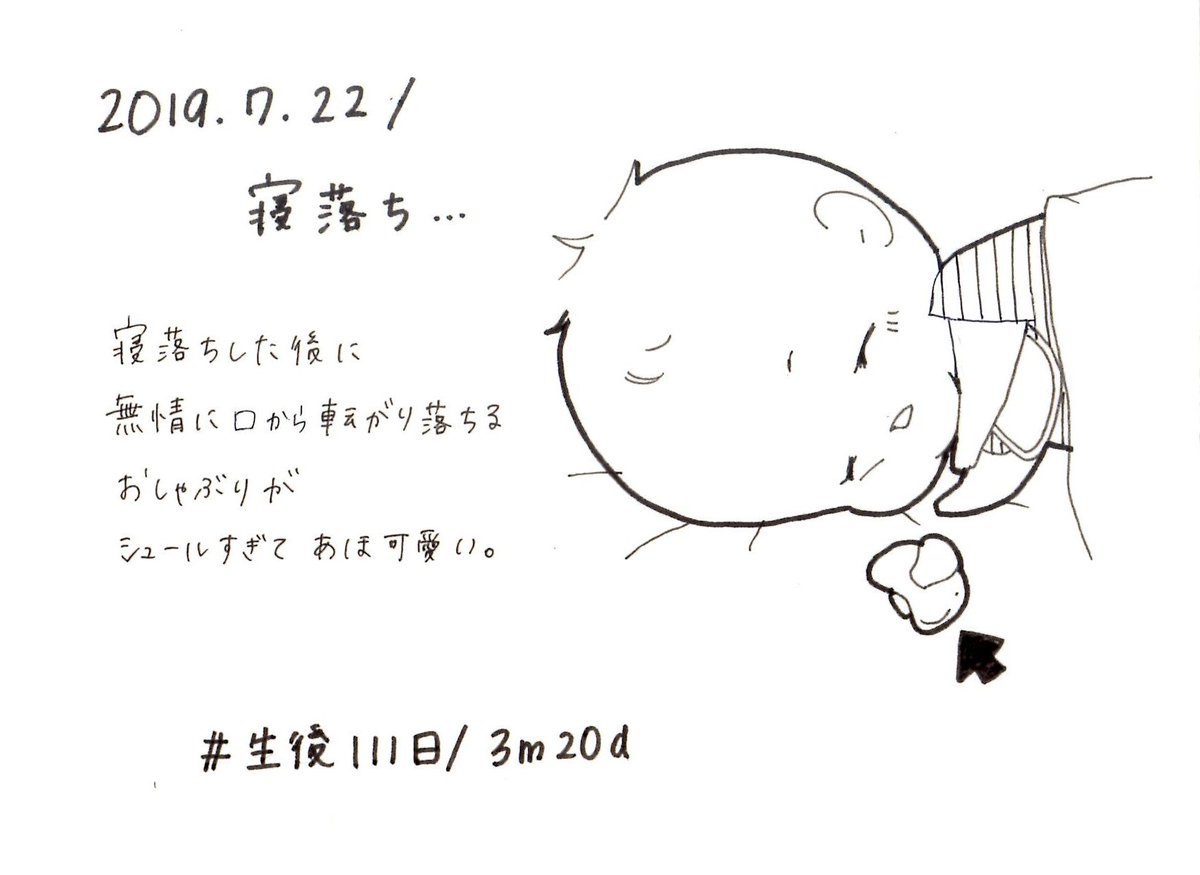 2019.7.22/
寝落ち…
寝落ちした後に
無情に口から転がり落ちる
おしゃぶりが
シュールすぎて あほ可愛い。
#生後111日/3m20d